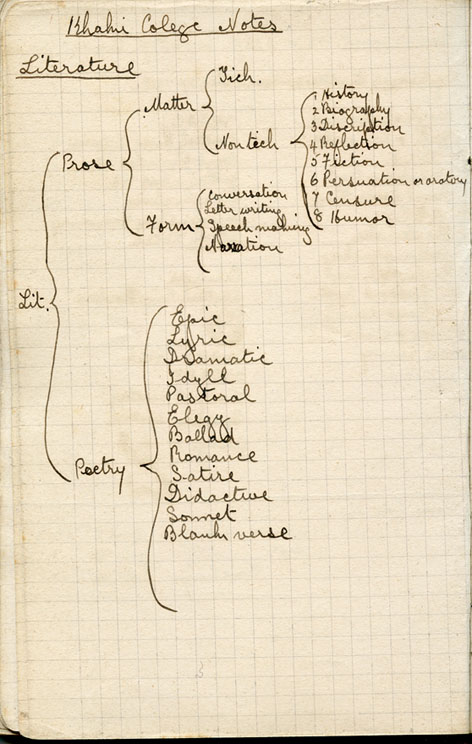 Khaki Colege Notes
Literature
Lit.
Prose
Matter
Tich.
Nontech
1 History
2 Biography
3 Discription
4 Reflection
5 Fiction
6 Persuation or oratory
7 Censure
8 Humor
Form
Conversation
Letter writing
Speech making
Narration
Poetry
Epic
Lyric
Dramatic
Idyll
Pastoral
Elegy
Ballad
Romance
Satire
Didactive
Sonnet
Blank verse